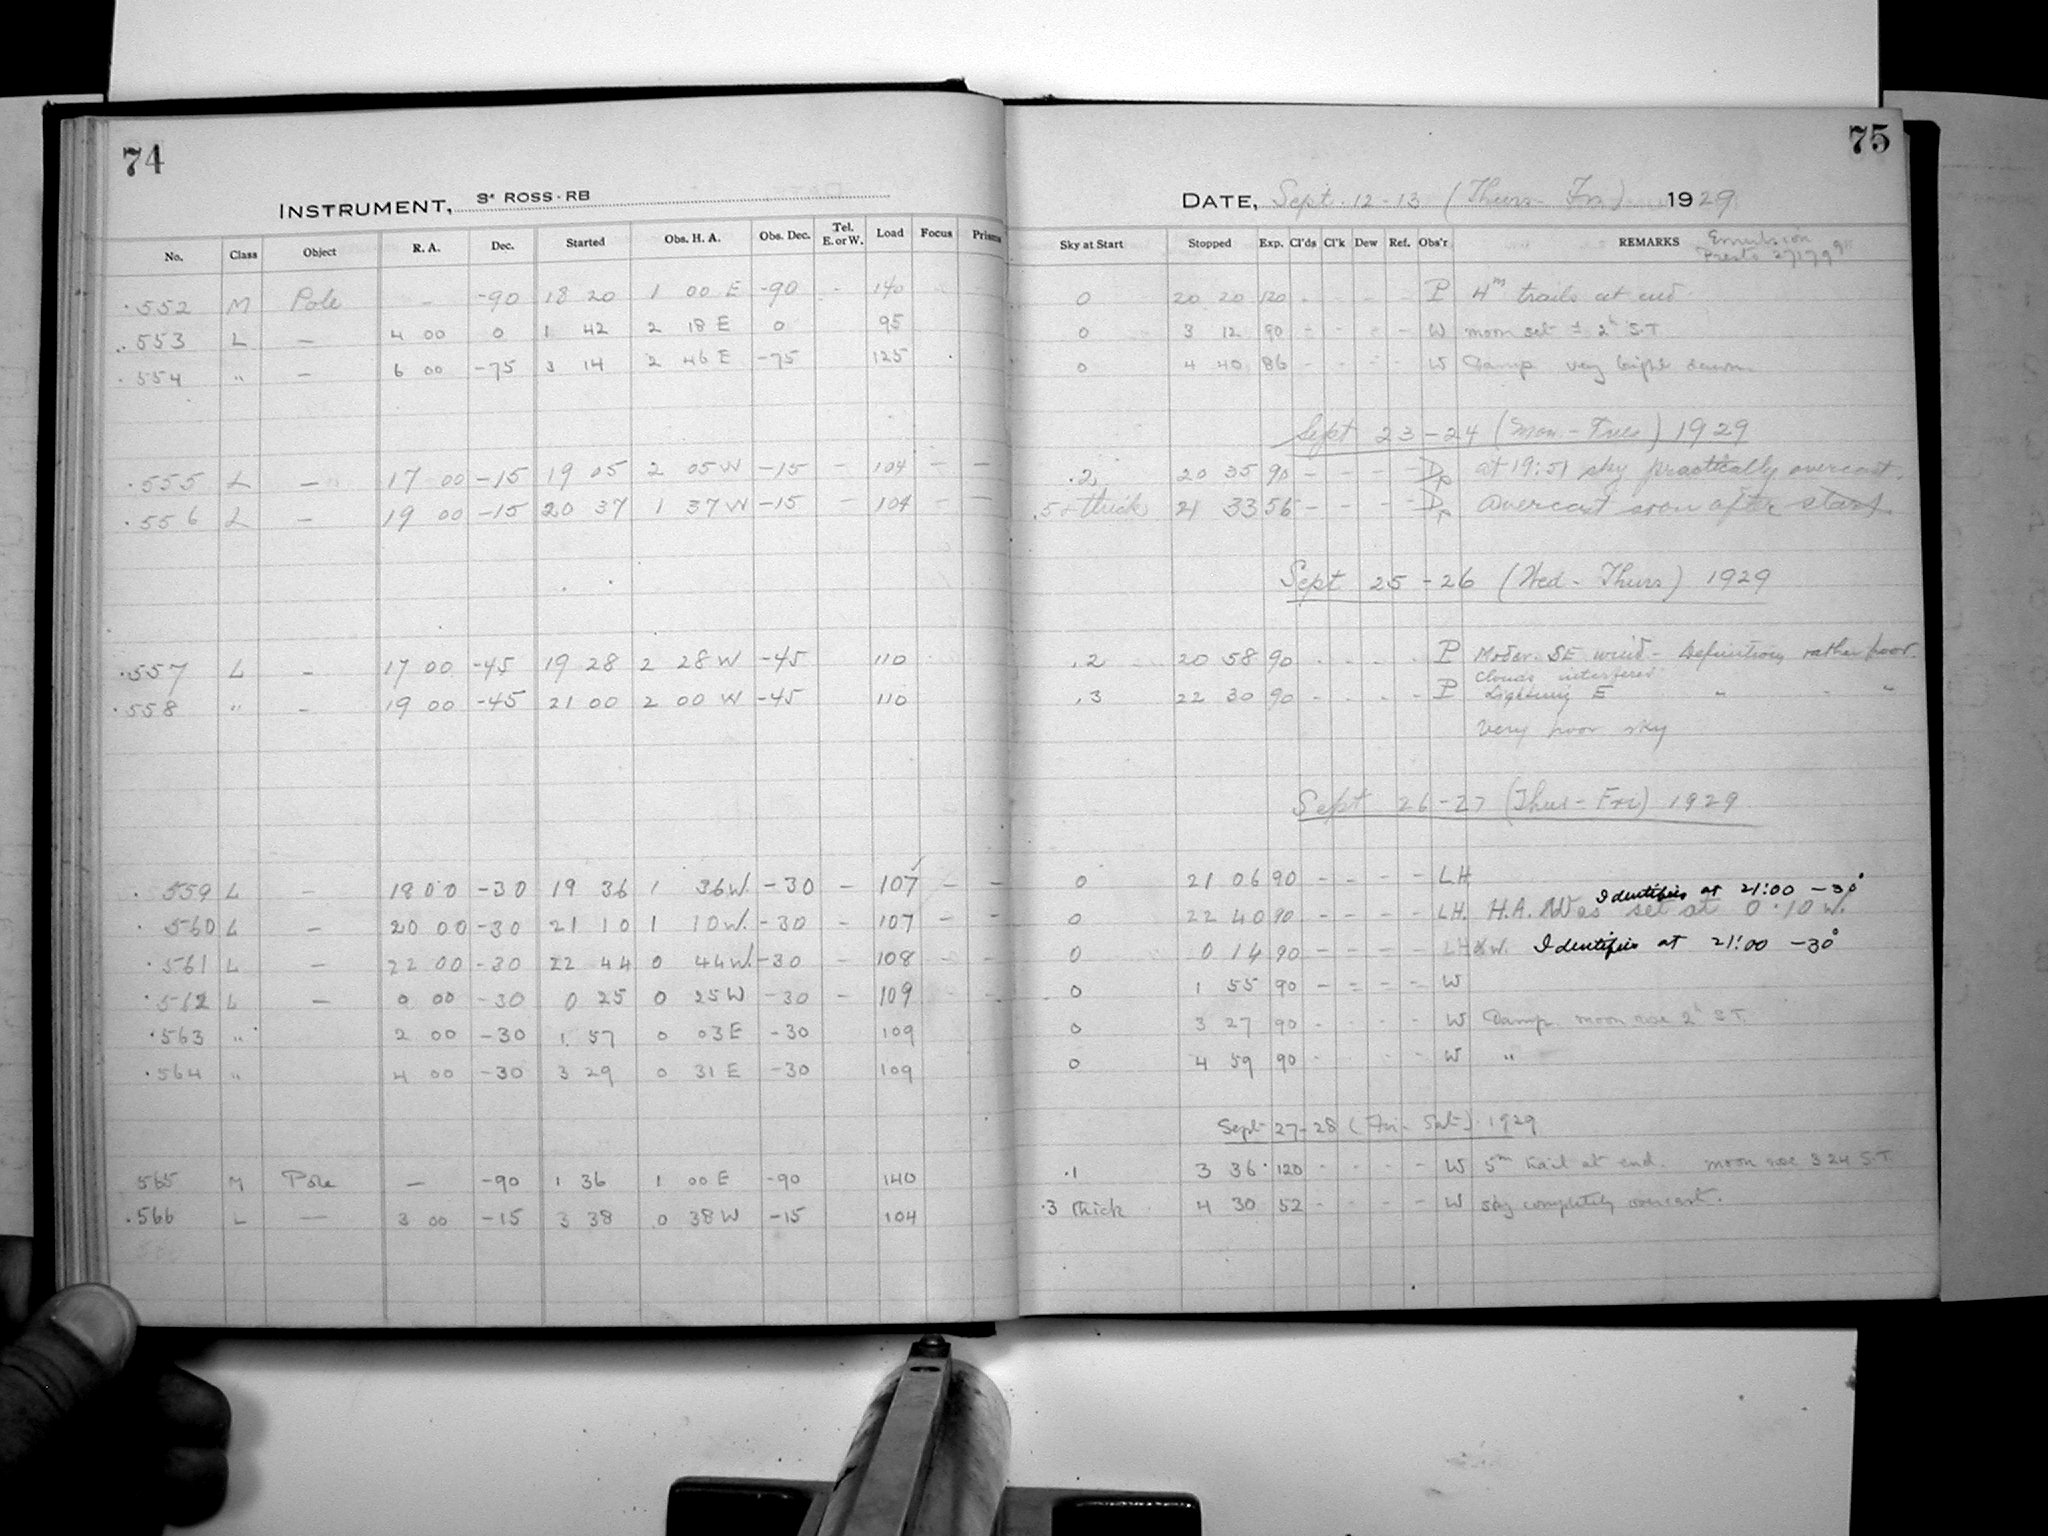 74
INSTRUMENT, 3" ROSS-RB
No. Class Object R. A. Dec. Started Obs. H. A. Obs. Dec. Tel. E. or W. Load Focus Prisms
.552 M Pole - -90 18 20 1 00 E -90 - 140
.553 L — 4 00 0 1 42 2 18 E 0 95
.554 " — 6 00 -75 3 14 2 46 E -75 125
.555 L — 17 00 -15 19 05 2 05 W -15 - 104 - -
.556 L — 19 00 -15 20 37 1 37 W -15 - 104 - -
.557 L — 17 00 -45 19 28 2 28 W -45 110
.558 " — 19 00 -45 21 00 2 00 W -45 110
.559 L — 18 00 -30 19 36 1 36 W. -30 - 107 - -
.560 L — 20 00 -30 21 10 1 10 W. -30 - 107 - -
.561 L — 22 00 -30 22 44 0 44 W. -30 - 108 - -
.562 L — 0 00 -30 0 25 0 25 W -30 - 109 - -
.563 " 2 00 -30 1 57 0 03 E -30 109
.564 " 4 00 -30 3 29 0 31 E -30 109
565 M Pole — -90 1 36 1 00 E -90 140
.566 L — 3 00 -15 3 38 0 38 W -15 104
75
DATE, Sept. 12-13 (Thurs- Fri) 1929
Sky at Start Stopped Exp. Cl'ds Cl'k Dew Ref. Obs'r REMARKS Emulsion
Presto
0 20 20 120 - - - - P 4m trails at end.
0 3 12 90 - - - - W moon set ± 2h S.T.
0 4 40 86 - - - - W Damp very bright dawn
Sept 23-24 (Mon-Tues) 1929
.2 20 35 90 - - - - Dr at 19:51 sky practically overcast.
.5 + thick 21 33 56 - - - - Dr Overcast soon after start.
Sept 25-26 (Wed- Thurs) 1929
.2 20 58 90 - - - - P Moder. SE wind - Definition rather poor.
Clouds interfered
.3 22 30 90 - - - - P Lightning E " - "
Very poor sky
Sept 26-27 (Thur-Fri) 1929
0 21 06 90 - - - - LH
Identifies at 21:00 -30°
0 22 40 90 - - - - LH. H.A. Was set at 0.10 W.
0 0 14 90 - - - - LH&W. Identifies at 21:00 -30°
0 1 55 90 - - - - W
0 3 27 90 - - - - W Damp moon rose 2h S.T.
0 4 59 90 - - - - W "
Sept 27-28 (Fri- Sat) 1929
.1 3 36 120 - - - - W 5m trail at end. moon rose 3 24 S.T.
.3 thick 4 30 52 - - - - W sky completely overcast.